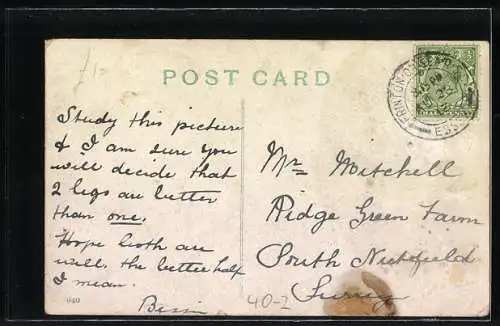 £1-
POST CARD
FRINTON-ON-SEA
ESSEX
HALFPENNY
Study this picture
& I am sure you
will decide that
2 legs are better
than one.
Hope both are
well. the better half
I mean.
Mr Mitchell
Ridge Green Farm
South Nutfield
Surrey
40-2